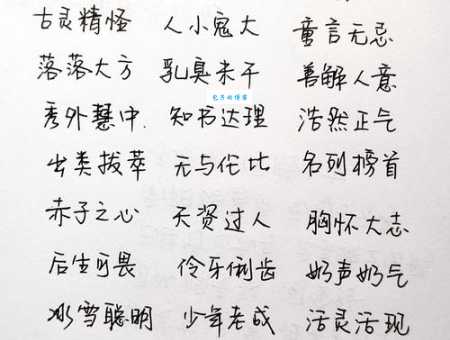 古灵精怪 人小鬼大 童言无忌
落落大方 乳臭未干 善解人意
秀外慧中. 知书达理 浩然正气
出类拔萃 无与伦比 名列榜首
赤子之心 天资过人 胸怀大志
后生可畏 伶牙俐齿 奶声奶气
冰雪聪明 少年老成 活灵活现